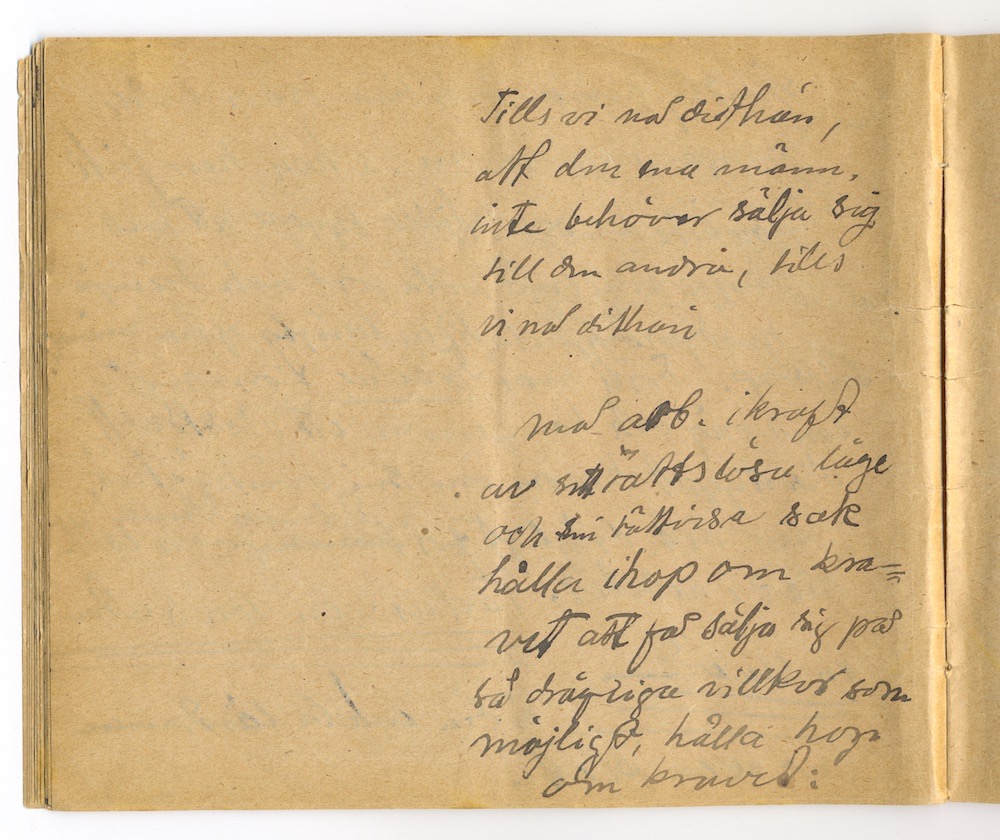 Tills vi nå dithän,
att den ena männ.
inte behöver sälja sig
till den andra, tills
vi nå dithän
må arb. i kraft
av sitt rättslösa läge
och sin rättvisa sak
hålla ihop om kra=
vet att få sälja sig på
så drägliga villkor som
möjligt, hålla hop
om kravet: